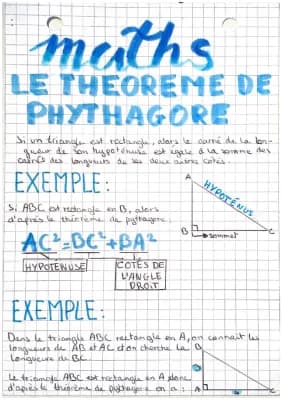 maths
LE THEOREME DE
PHYTHAGORE
Si un triangle est rectangle, alors le carré de la lon-
gueur de son hypoténuse est égale à la somme des
carrés des longueurs de ses deux autres côtés.
EXEMPLE:
Si ABC est rectangle en B, alors
d'après le théorème de pythagore:
AC²=BC²+BA²
HYPOTENUSE
COTÉS DE
L'ANGLE
DROIT
A
HYPOTÉNUS
B
sommet
C
EXEMPLE:
Dans le triangle ABC rectangle en A, on connait les
longueurs de AB et AC et on cherche la
longueure de BC.
B
Le triangle ABC est rectangle en A donc
d'après le théorème de pythagore on a:
A
C